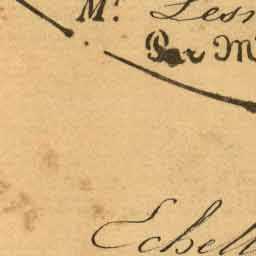 Mr. Les
Par M
Echell